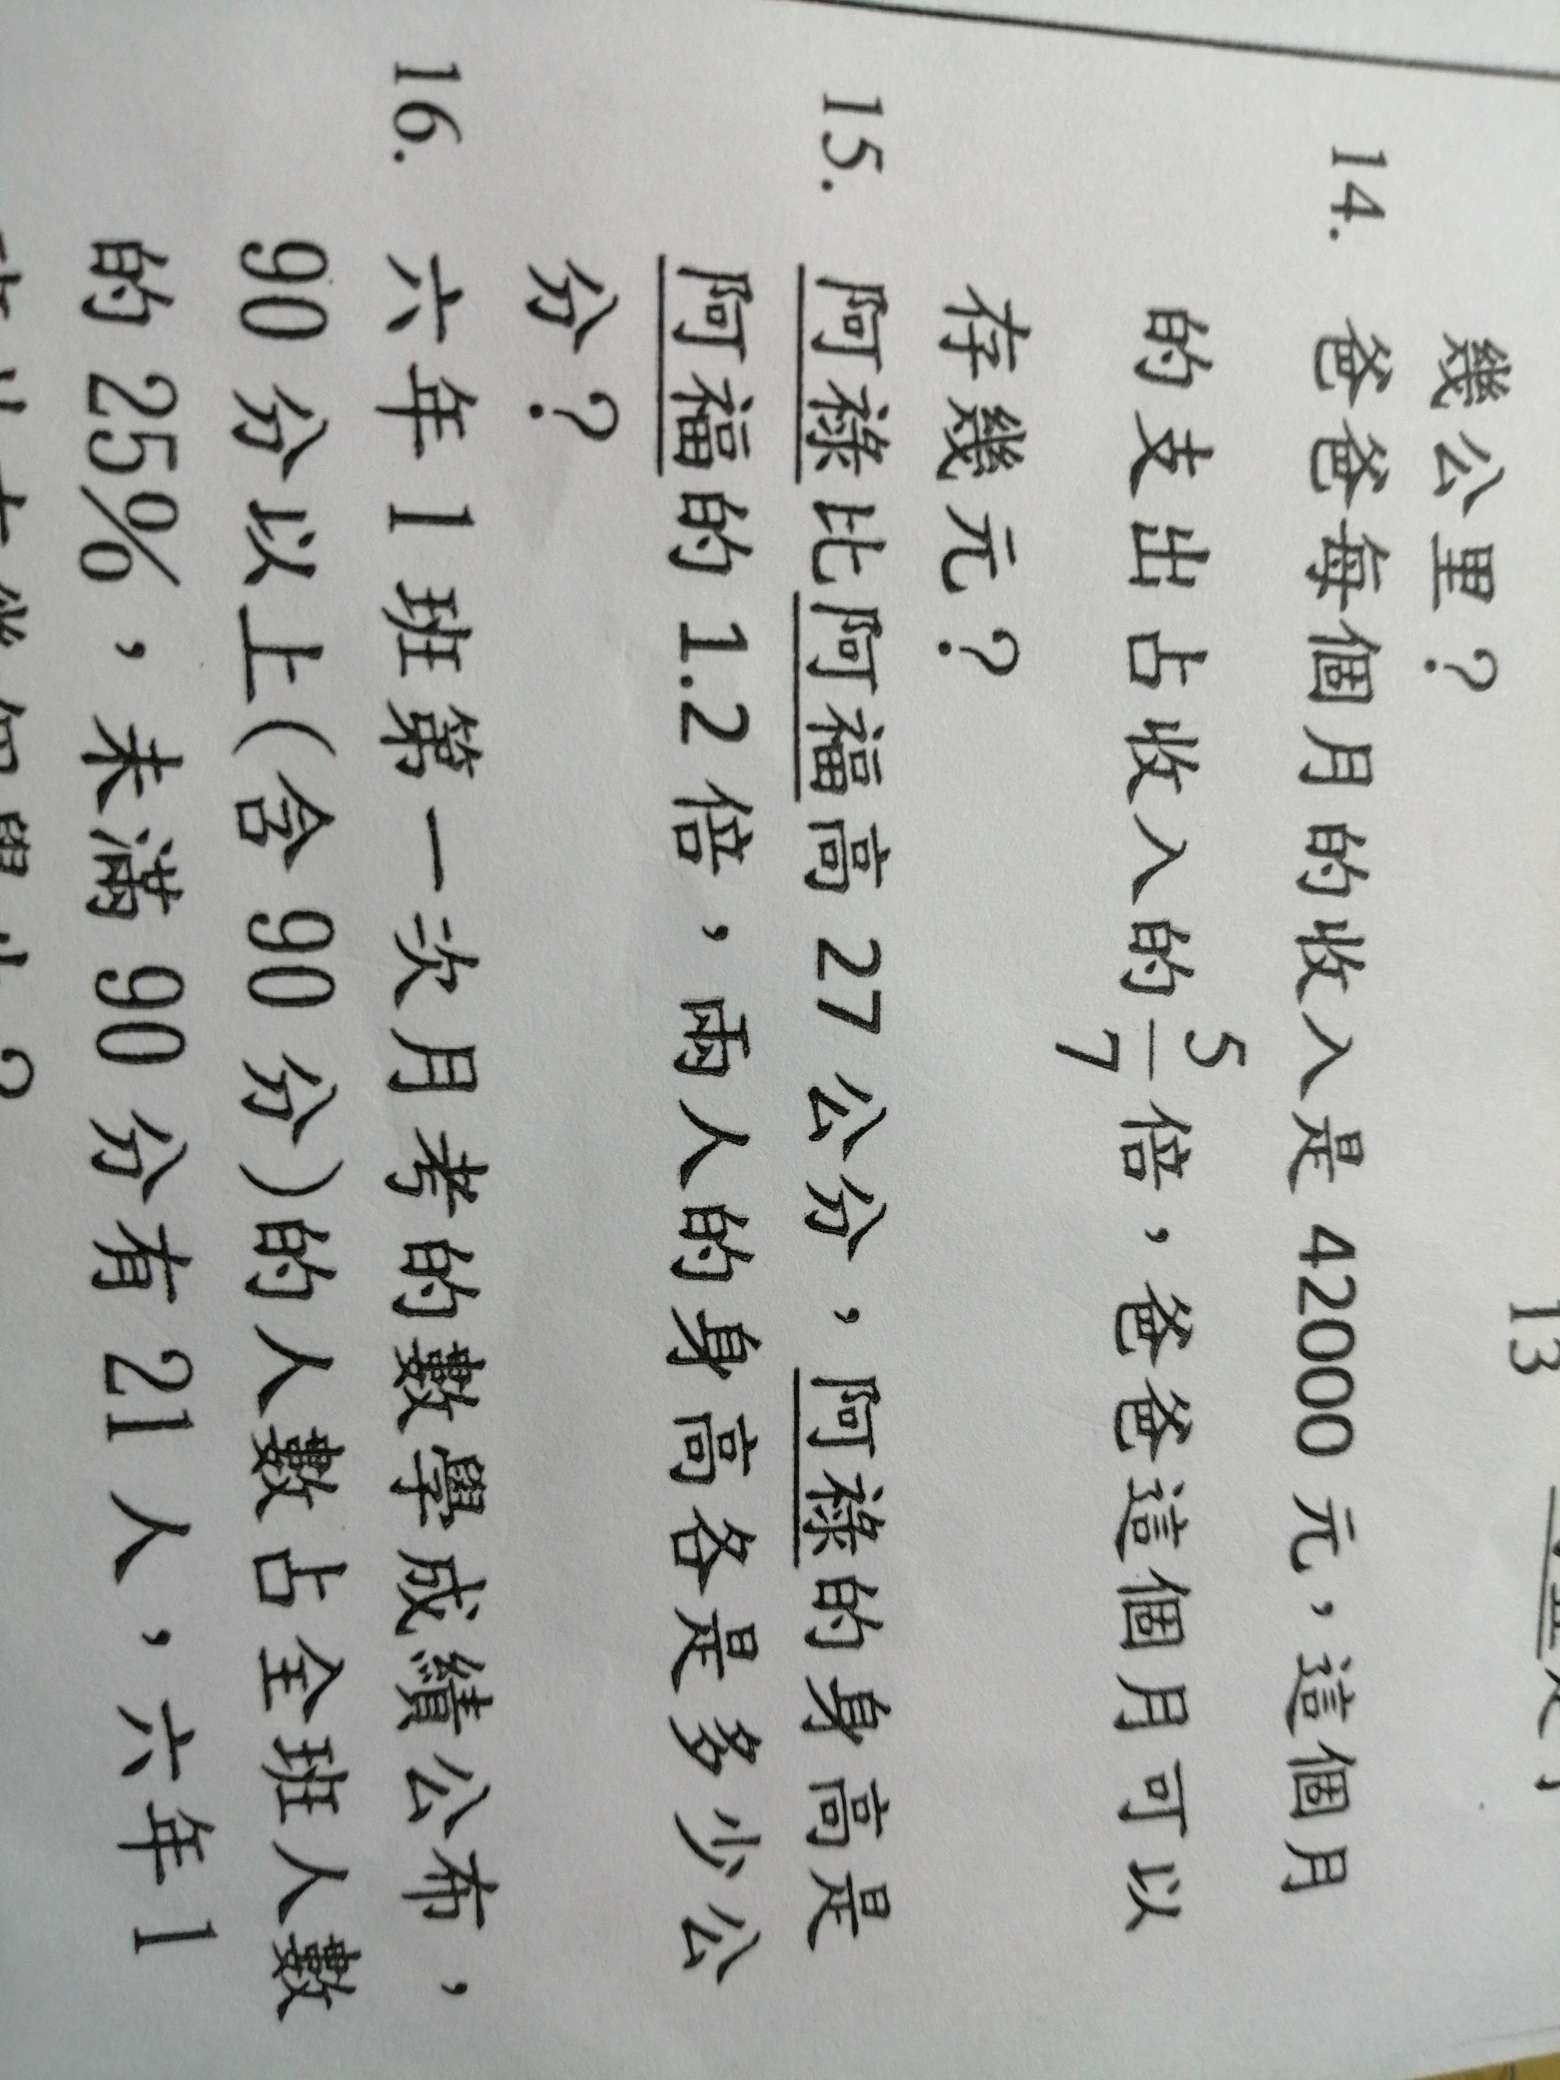 13
幾公里？
14. 爸爸每個月的收入是 42000 元，這個月
的支出占收入的 5/7 倍，爸爸這個月可以
存幾元？
15. 阿祿比阿福高 27 公分，阿祿的身高是
阿福的 1.2 倍，兩人的身高各是多少公
分？
16. 六年 1 班第一次月考的數學成績公布，
90 分以上(含 90 分)的人數占全班人數
的 25%，未滿 90 分有 21 人，六年 1